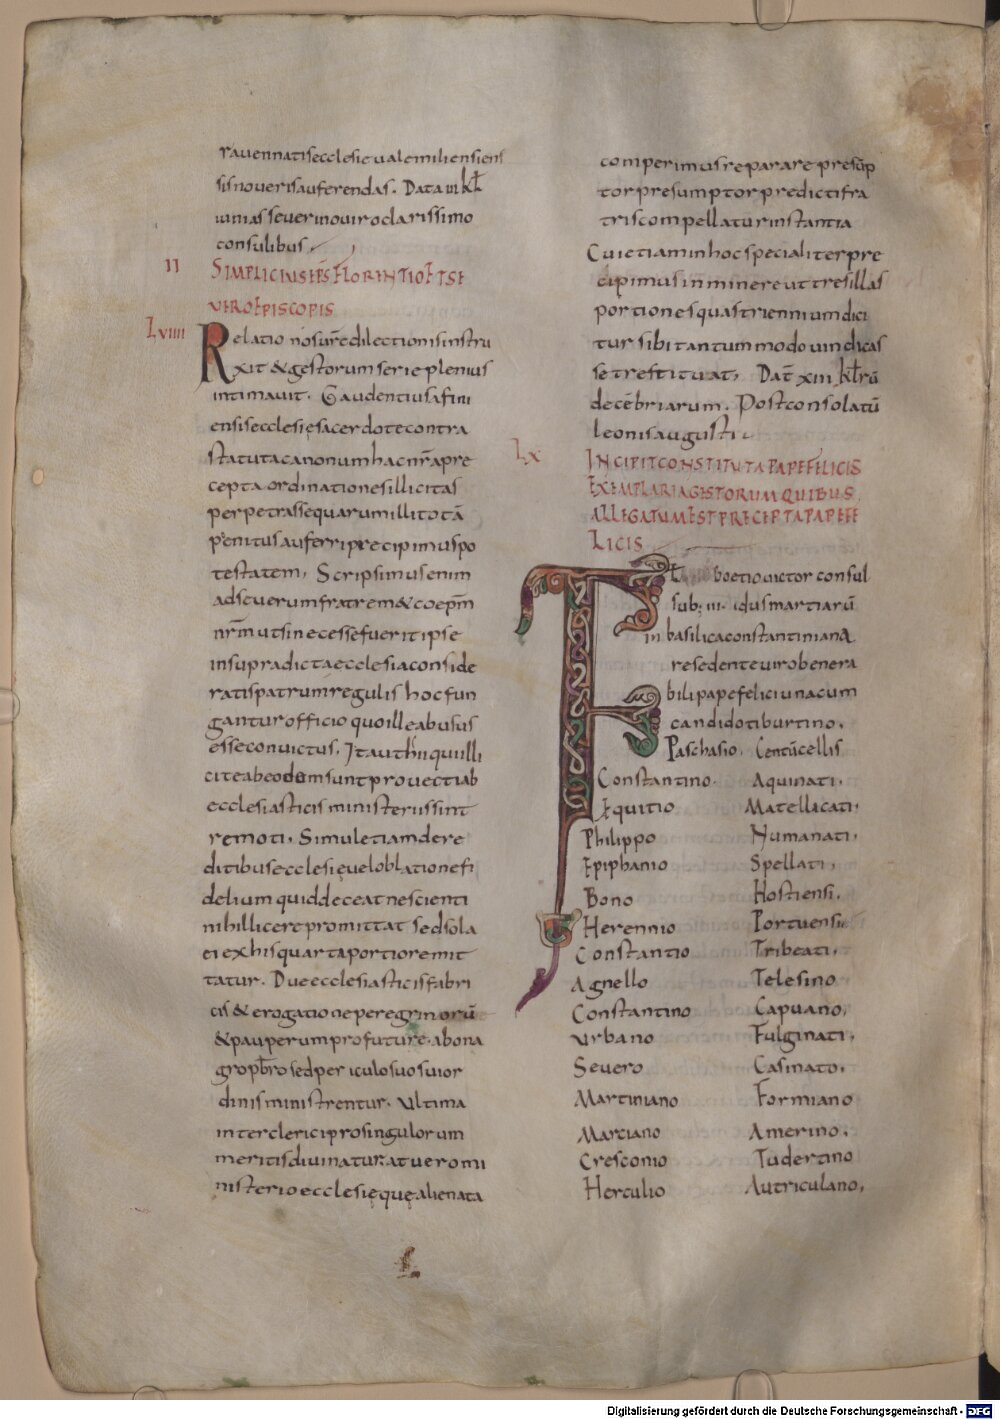 rauennatisecclesieualemiliensiens
sisnouerisauferendas. Data iii kł
iunias seuerinouiroclarissimo
consulibus
II
SIMPLICIUSEPS FLORENTIOETSE
VEROEPISCOPIS
LVIIII
Relatio nosurēdilectionisinstru
xit &gestorum serie plenius
intimauit. Gaudentiusafini
ensisecclesięsacerdotecontra
statutacanonumhacnr̄apre
cepta ordinationesillicitas
perpetrassequarumillitotā
penitusauferriprecipimuspo
testatem, Scripsimusenim
adseuerumfratrem&coepm̄
nrm̄utsinecessefueritipse
insupradictaecclesiaconside
ratispatrumregulis hocfun
ganturofficio quoilleabusus
esseconuictus. Itauthiiquiilli
citeabeodemsuntprouectiab
ecclesiasticis ministeriissint
remoti. Simuletiamdere
ditibusecclesięueloblationefi
delium quiddeceatnescienti
nihilliceretpromittat sedsola
eiexhisquartaportioremit
tatur. Dueecclesiasticisfabri
cis & erogationeperegrinorū
&pauperumprofuture. abona
gropbr̄osedpericulosuosuior
dinisministrentur. Ultima
interclericiprosingulorum
meritisdiuinatur. atueromi
nisterioecclesięquęalienata
comperimusreparare presūp
torpresumptorpredictifra
triscompellaturinstantia
Cuietiaminhocspecialiterpre
cipimusinminereuttresillas
portionesquastrienniumdici
tursibitantummodouindicas
setrestituat, Dat̄ xiii kłrū
decēbriarum. Postconsolatū
leonisaugusti
LX
INCIPITCONSTITUTAPAPEFELICIS
EXEMPLARIAGESTORUMQUIBUS
ALLEGATUMESTPRECEPTAPAPEFE
LICIS
Fl boetiouictor consul
sub. iii. idusmartiarū
in basilicaconstantiniana
resedenteuirobenera
bilipapefeliciunacum
candidotiburtino.
Paschasio. Centūcellis
Constantino. Aquinati.
Equitio Matellicati.
Philippo Numanati.
Epiphanio Spellati.
Bono Hostiensi.
Herennio Portuensi
Constantio Tribeati.
Agnello Telesino
Constantino Capuano,
Urbano Fulginati.
Seuero Casinato.
Martiniano Formiano
Marciano Amerino.
Cresconio Tudertino
Herculio Autriculano,
Digitalisierung gefördert durch die Deutsche Forschungsgemeinschaft - DFG